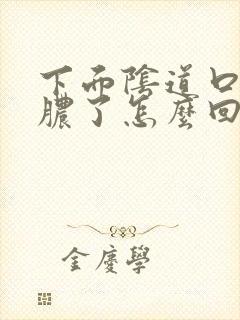 下面陰道口
膿了怎麼回
金慶學